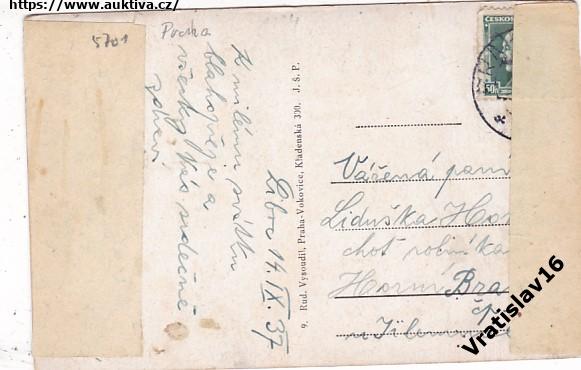 https://www.auktiva.cz/
5701
Praha
ČESKO
50h
K milému svátku
blahopřeje a
všecky Vás srdečně
zdraví
Libra 14. IX. 37
9. Rud. Vysoudil, Praha-Vokovice, Kladenská 330. J. Š. P.
Vážená paní
Liduška Hor
choť rolníka
Horní Bra
Vratislav16